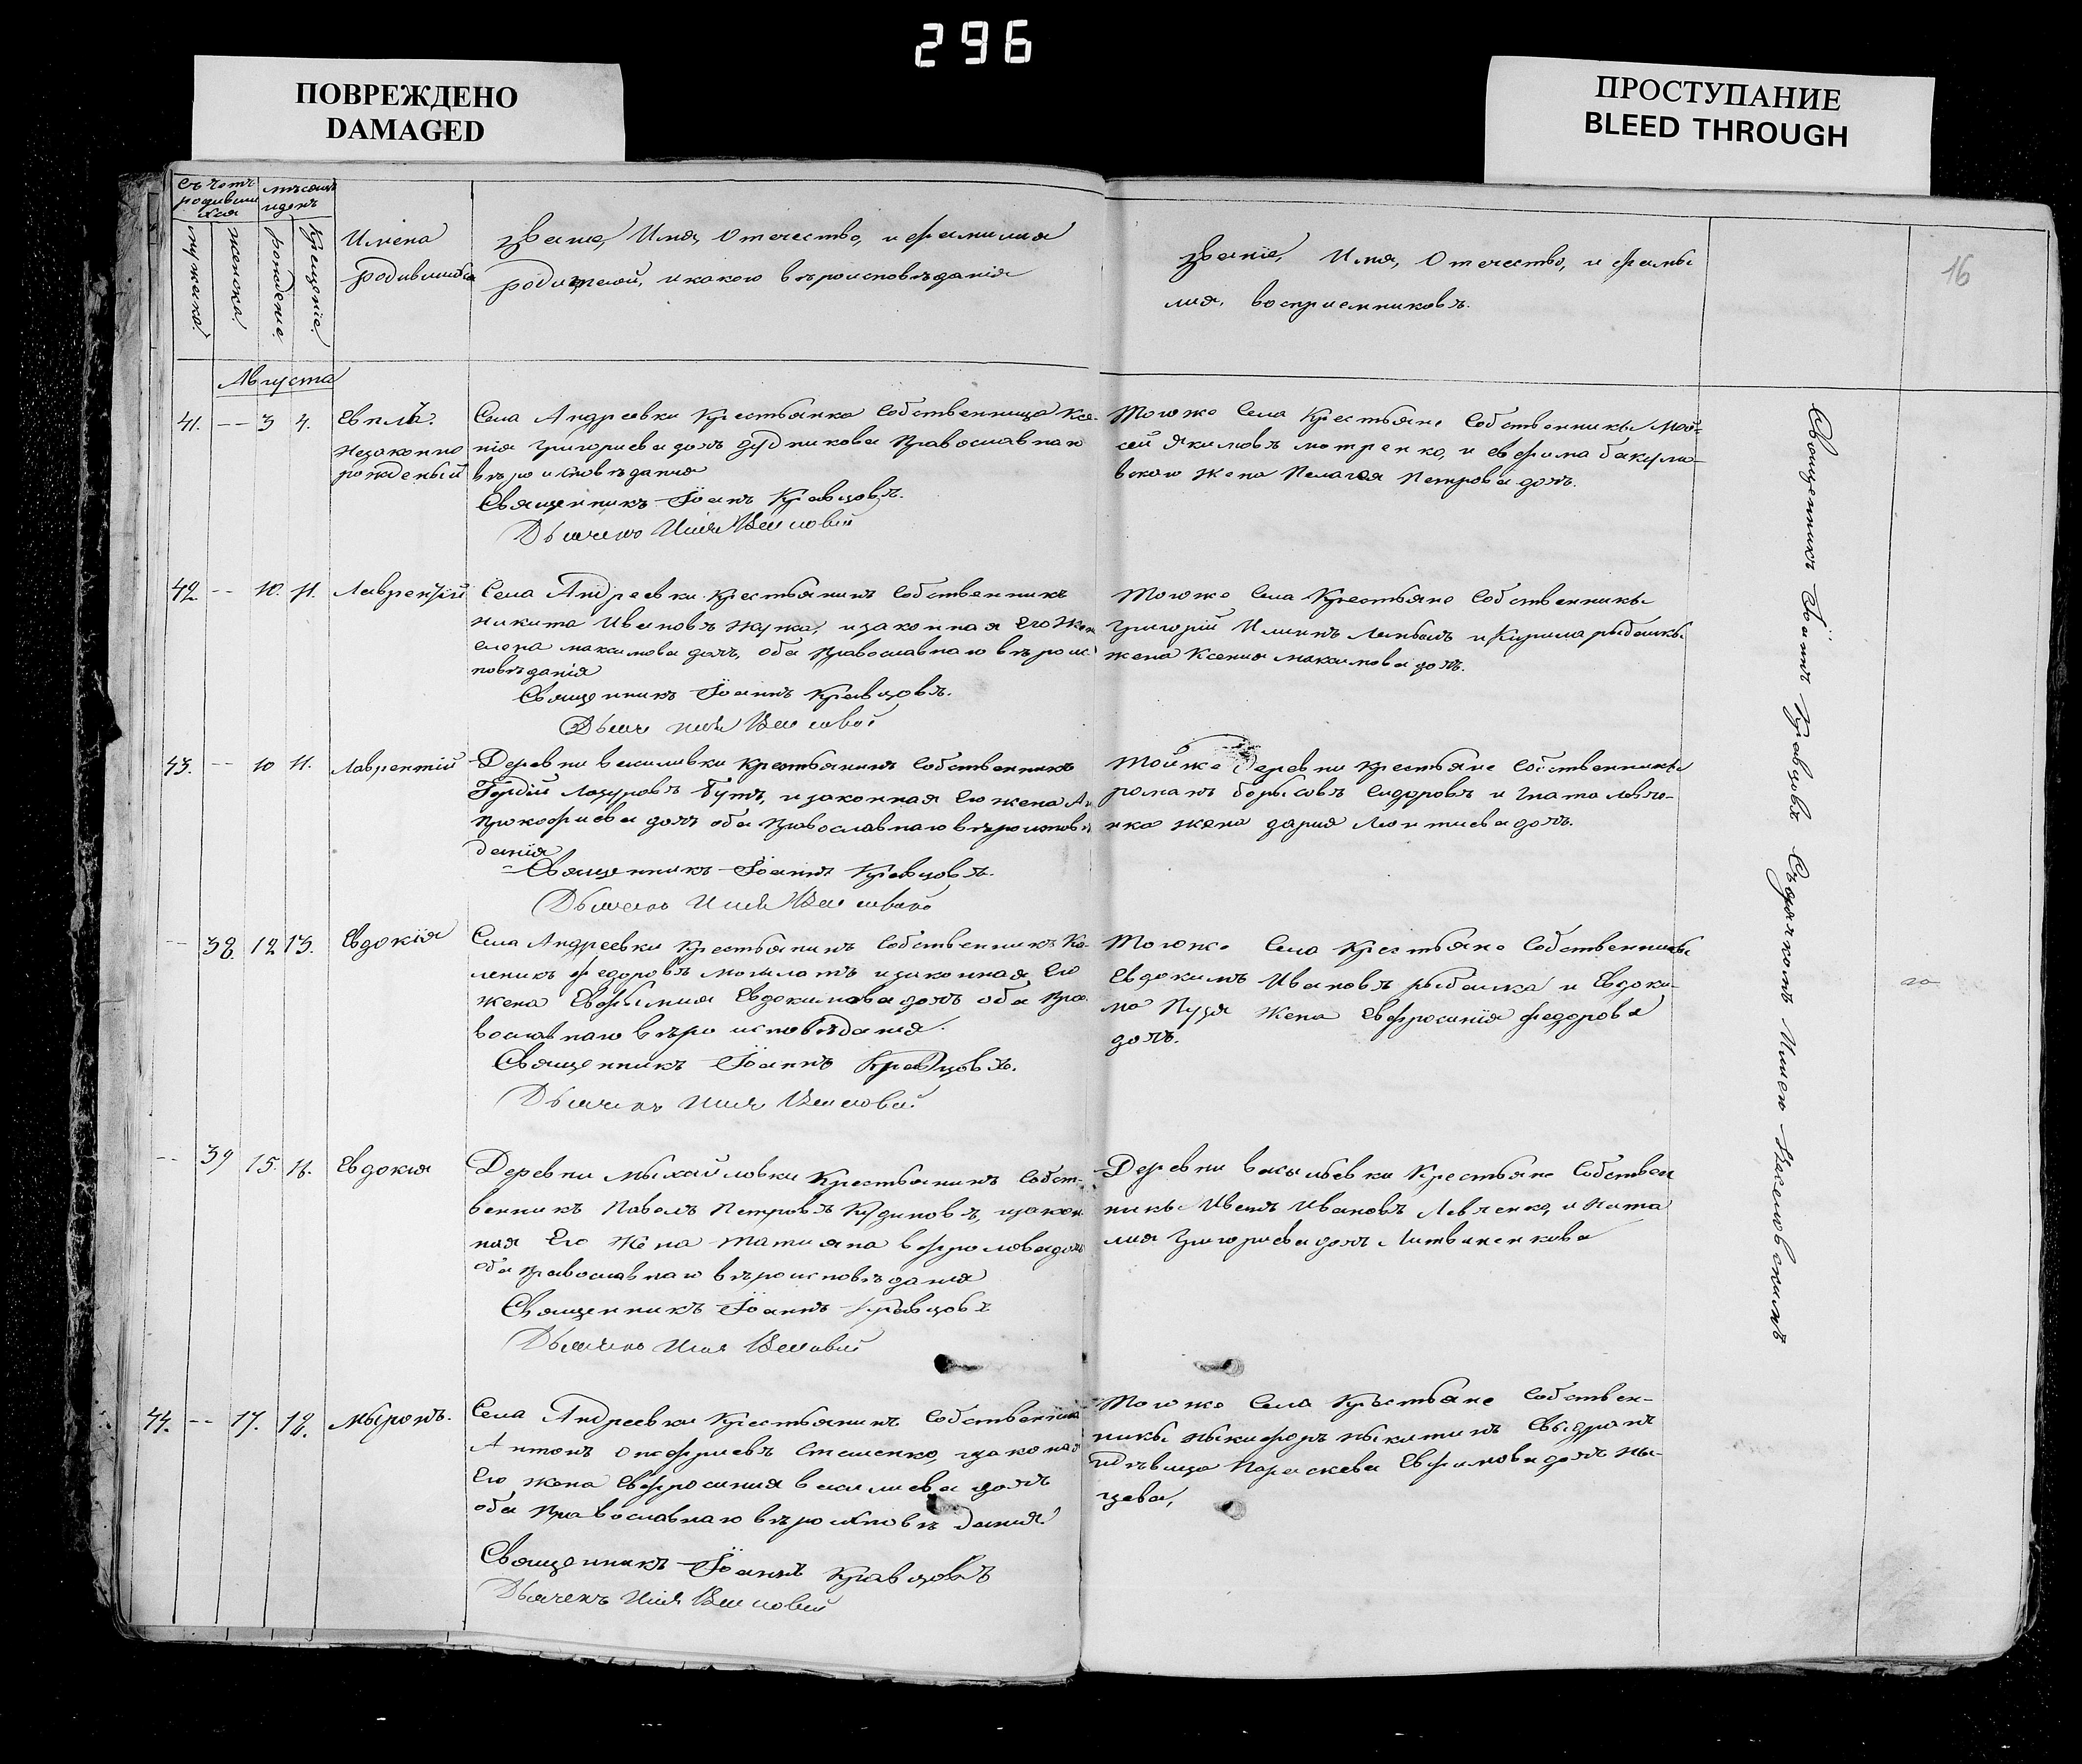 296
ПОВРЕЖДЕНО
DAMAGED
ПРОСТУПАНИЕ
BLEED THROUGH
16
родивших
ся
мужеска.
женска.
рождение.
Крещеніе.
Имена
родившихся
Званіе, Имя, Отечество, и фамилия
родителей, и какого вѣроисповѣданія
Званіе, Имя, Отечество, и фами
лия, восприемниковъ.
Августа
41. -- 3 4. Евплъ.
незаконно
рожденый
Села Андреевки Крестьянка Собственница Ксе-
нія Григориева дочь Дудникова Православнаго
вѣроисповѣдания
Священникъ Іоанъ Кравцовъ.
Тогоже Села Крестьяне Собственники Мои-
сей Якимовъ мотренко, и евфима бакума-
вскаго жена Пелагея Петрова дочь.
42 -- 10. 11. Лаврентій
Села Андреевки Крестьянинъ Собственникъ
никита Ивановъ Жужа, и законная Его Жен
елена максимова дочь, оба Православнаго вѣроис
повѣданія
Священникъ Іоаннъ Кравцовъ.
Тогоже Села Крестьяне Собственники
Григорій Илиинъ и Кирила рыбалки
жена Ксения максимова дочь.
43. -- 10 11. Лаврентій
Деревни василивки Крестьянинъ Собственникъ
Гордій Лазуровъ Бутъ, и законная Его жена
Прокофиева дочь оба Православнаго вѣроисповѣ
данія
Священникъ Іоаннъ Кравцовъ.
Тойже Деревни Крестьяне Собственники
романъ борысовъ Сидоровъ и Гната левче-
нка жена дария Леонтиева дочь.
-- 38. 12 13. Евдокія
Села Андреевки Крестьянинъ Собственникъ Ка-
леникъ федоровъ могилатъ и законная Его
жена Евфымия Евдокимова дочь оба Пра-
вославнаго вѣроисповѣдания.
Священникъ Іоаннъ Кравцовъ.
Тогоже Села Крестьяне Собственники
Евдокимъ Ивановъ рыбалка и Евдоки-
ма Пузя Жена Евфросинія федорова
дочь.
-- 39 15. 16. Евдокия
Деревни мыхайловки Крестьянинъ Собст-
венникъ Павелъ Петровъ Кудиновъ, и закон
ная Его Жена Татияна вфролова дочь
оба православнаго вѣроисповѣдания
Священникъ Іоаннъ Кравцовъ
Деревни васыльевки Крестьяне Собствен
ники Иванъ Ивановъ Левченко, и Ната
лия Григориева дочь Литвиненкова
44. -- 17. 18. Мыронъ.
Села Андреевки Крестьянинъ Собственникъ
Антонъ Онофриевъ Стешенко, и законая
Его жена Евфросиния василиева дочь
оба Православнаго вѣроисповѣдания.
Священникъ Іоаннъ Кравцовъ
Тогоже Села Крестьяне Собствен-
ники ныкифоръ ныкитинъ
и дѣвица Параскева Евфимова дочь
Священникъ Іоаннъ Кравцовъ Съ дячкомъ Ильею